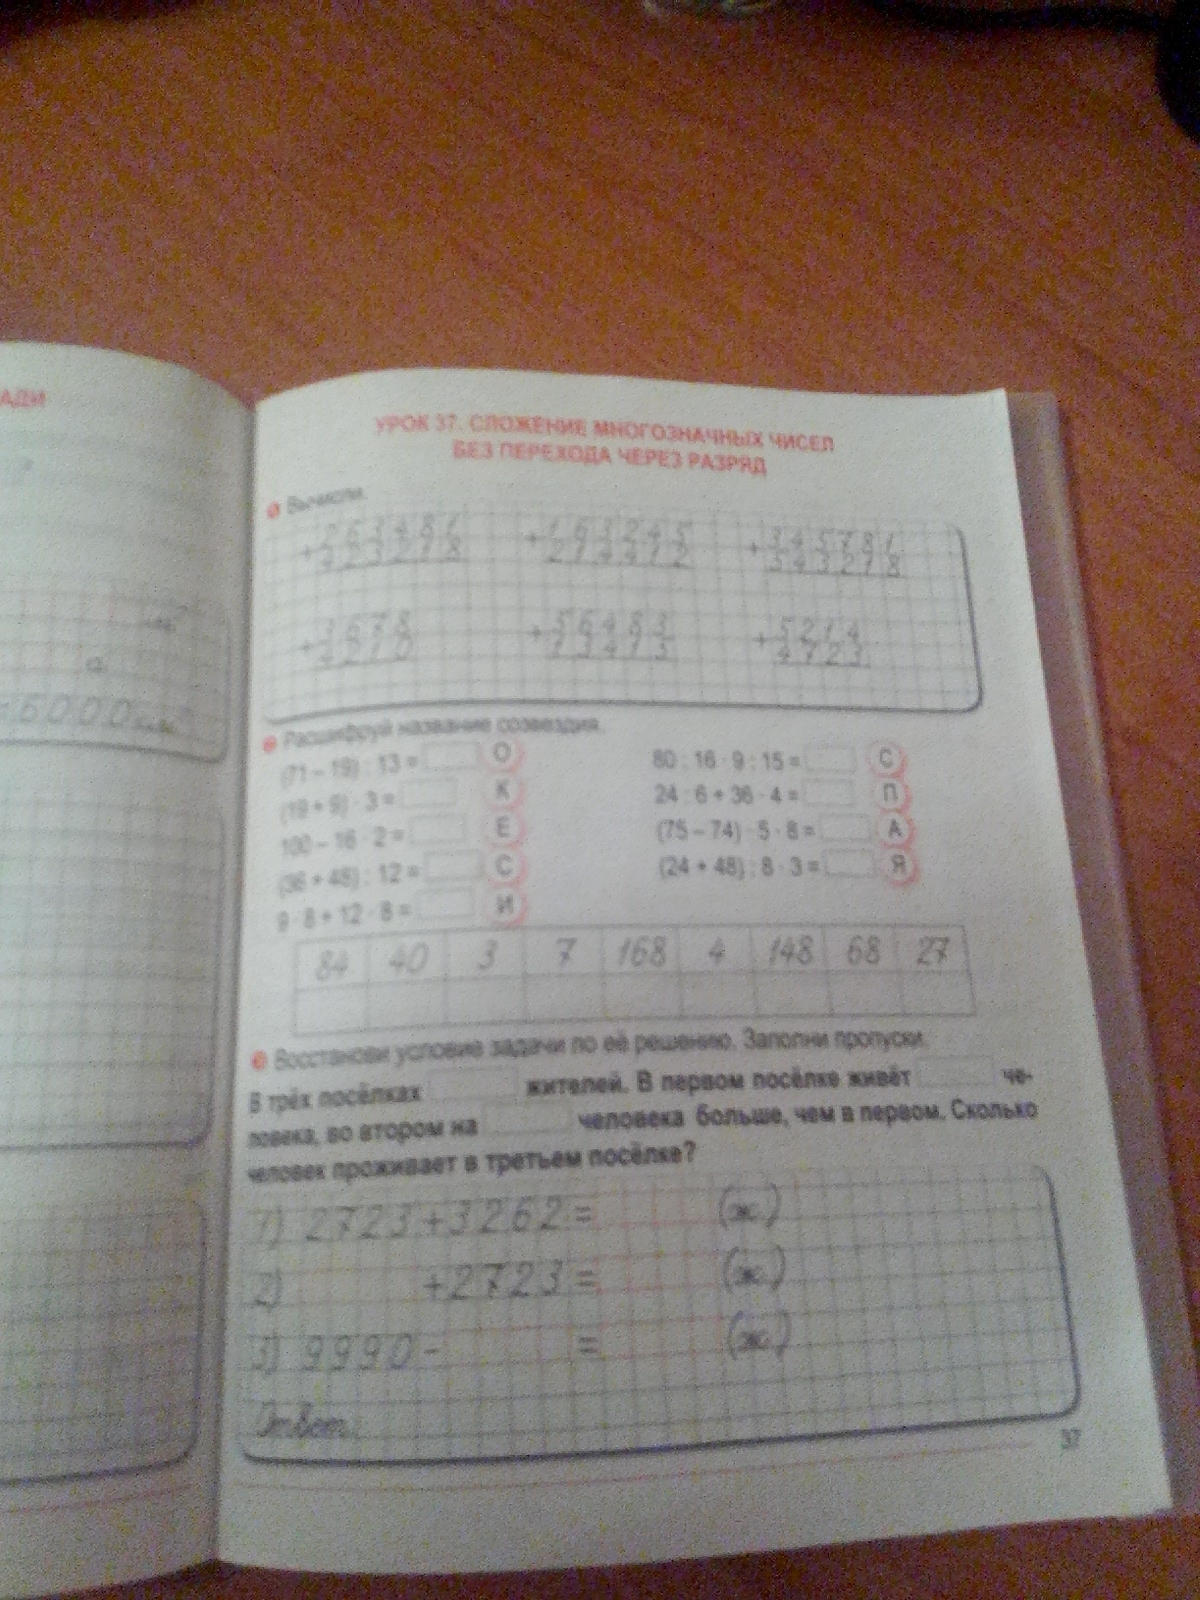 АДИ
а
6000
УРОК 37. СЛОЖЕНИЕ МНОГОЗНАЧНЫХ ЧИСЕЛ
БЕЗ ПЕРЕХОДА ЧЕРЕЗ РАЗРЯД
1 Вычисли.
+263481 +163245 +345781
423218 214412 343218
+3678 +56483 +5214
4210 13413 4723
2 Расшифруй название созвездия.
(71 – 19) : 13 = О 80 : 16 · 9 : 15 = С
(19 + 9) · 3 = К 24 : 6 + 36 · 4 = П
100 – 16 · 2 = Е (75 – 74) · 5 · 8 = А
(36 + 48) : 12 = С (24 + 48) : 8 · 3 = Я
9 · 8 + 12 · 8 = И
84 40 3 7 168 4 148 68 27
3 Восстанови условие задачи по её решению. Заполни пропуски.
В трёх посёлках жителей. В первом посёлке живёт че-
ловека, во втором на человека больше, чем в первом. Сколько
человек проживает в третьем посёлке?
1) 2723+3262= (ж.)
2) +2723= (ж.)
3) 9990- = (ж.)
Ответ:
37